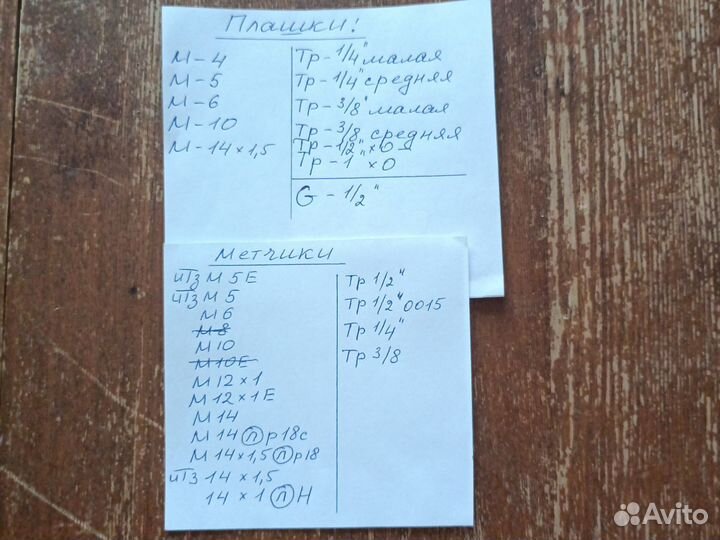 Плашки!
М-4
М-5
М-6
М-10
М-14×1,5
Тр-1/4" малая
Тр-1/4" средняя
Тр-3/8" малая
Тр-3/8 средняя
Тр-1/2" ×0
Тр-1" ×0
G-1/2"
Метчики
М 5Е
М 5
М 6
М 8
М 10
М 10Е
М 12×1
М 12×1Е
М 14
М 14 п р18с
М 14×1,5 п р18
14×1,5
14×1 п Н
Тр 1/2"
Тр 1/2" 0015
Тр 1/4"
Тр 3/8
Avito